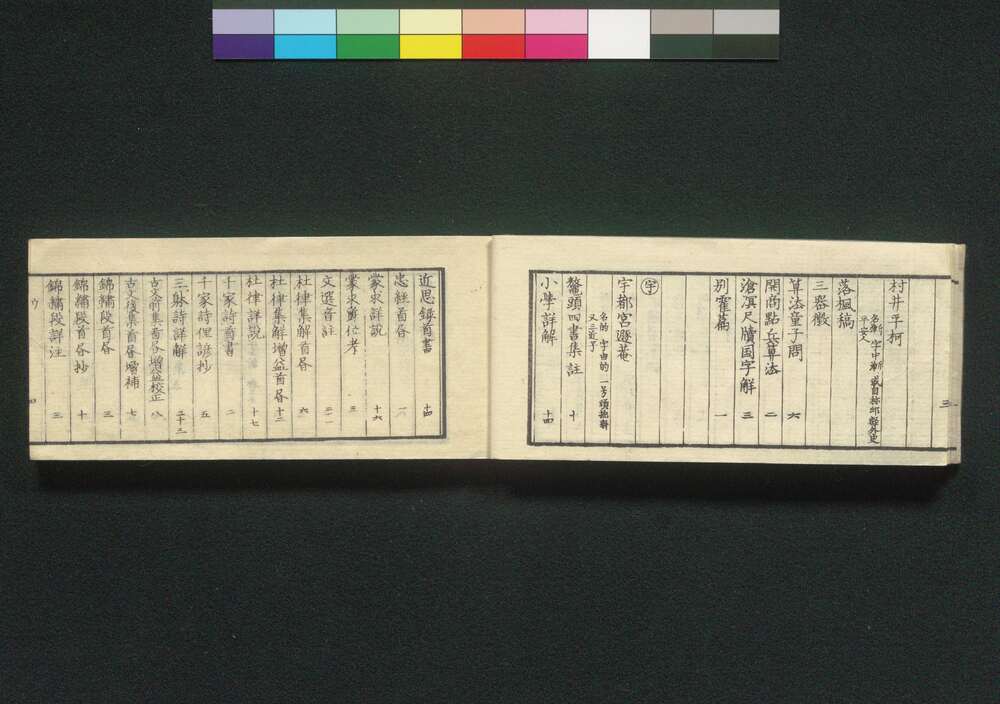 村井平柯
平安人
落楓稿
三器徴
算法童子問 六
開商點兵算法 二
滄溟尺牘国字解 三
別霍篇 一
宇
宇都宮遯菴
名的 字由的 一号頑拙
又三近子
鼇頭四書集註 十
小學詳解 十四
近思録首書 十四
忠経首書 一
蒙求詳説 十六
蒙求舊位考 三
文選音註 二十一
杜律集解首書 六
杜律集解増益首書 十二
杜律詳説 十七
千家詩首書 二
千家詩俚諺抄 五
三躰詩詳解 二十二
古文前集首書増益校正 八
古文後集首書増補 七
錦繡段首書 三
錦繡段首書抄 十
錦繡段詳注 三
三
四
ウ